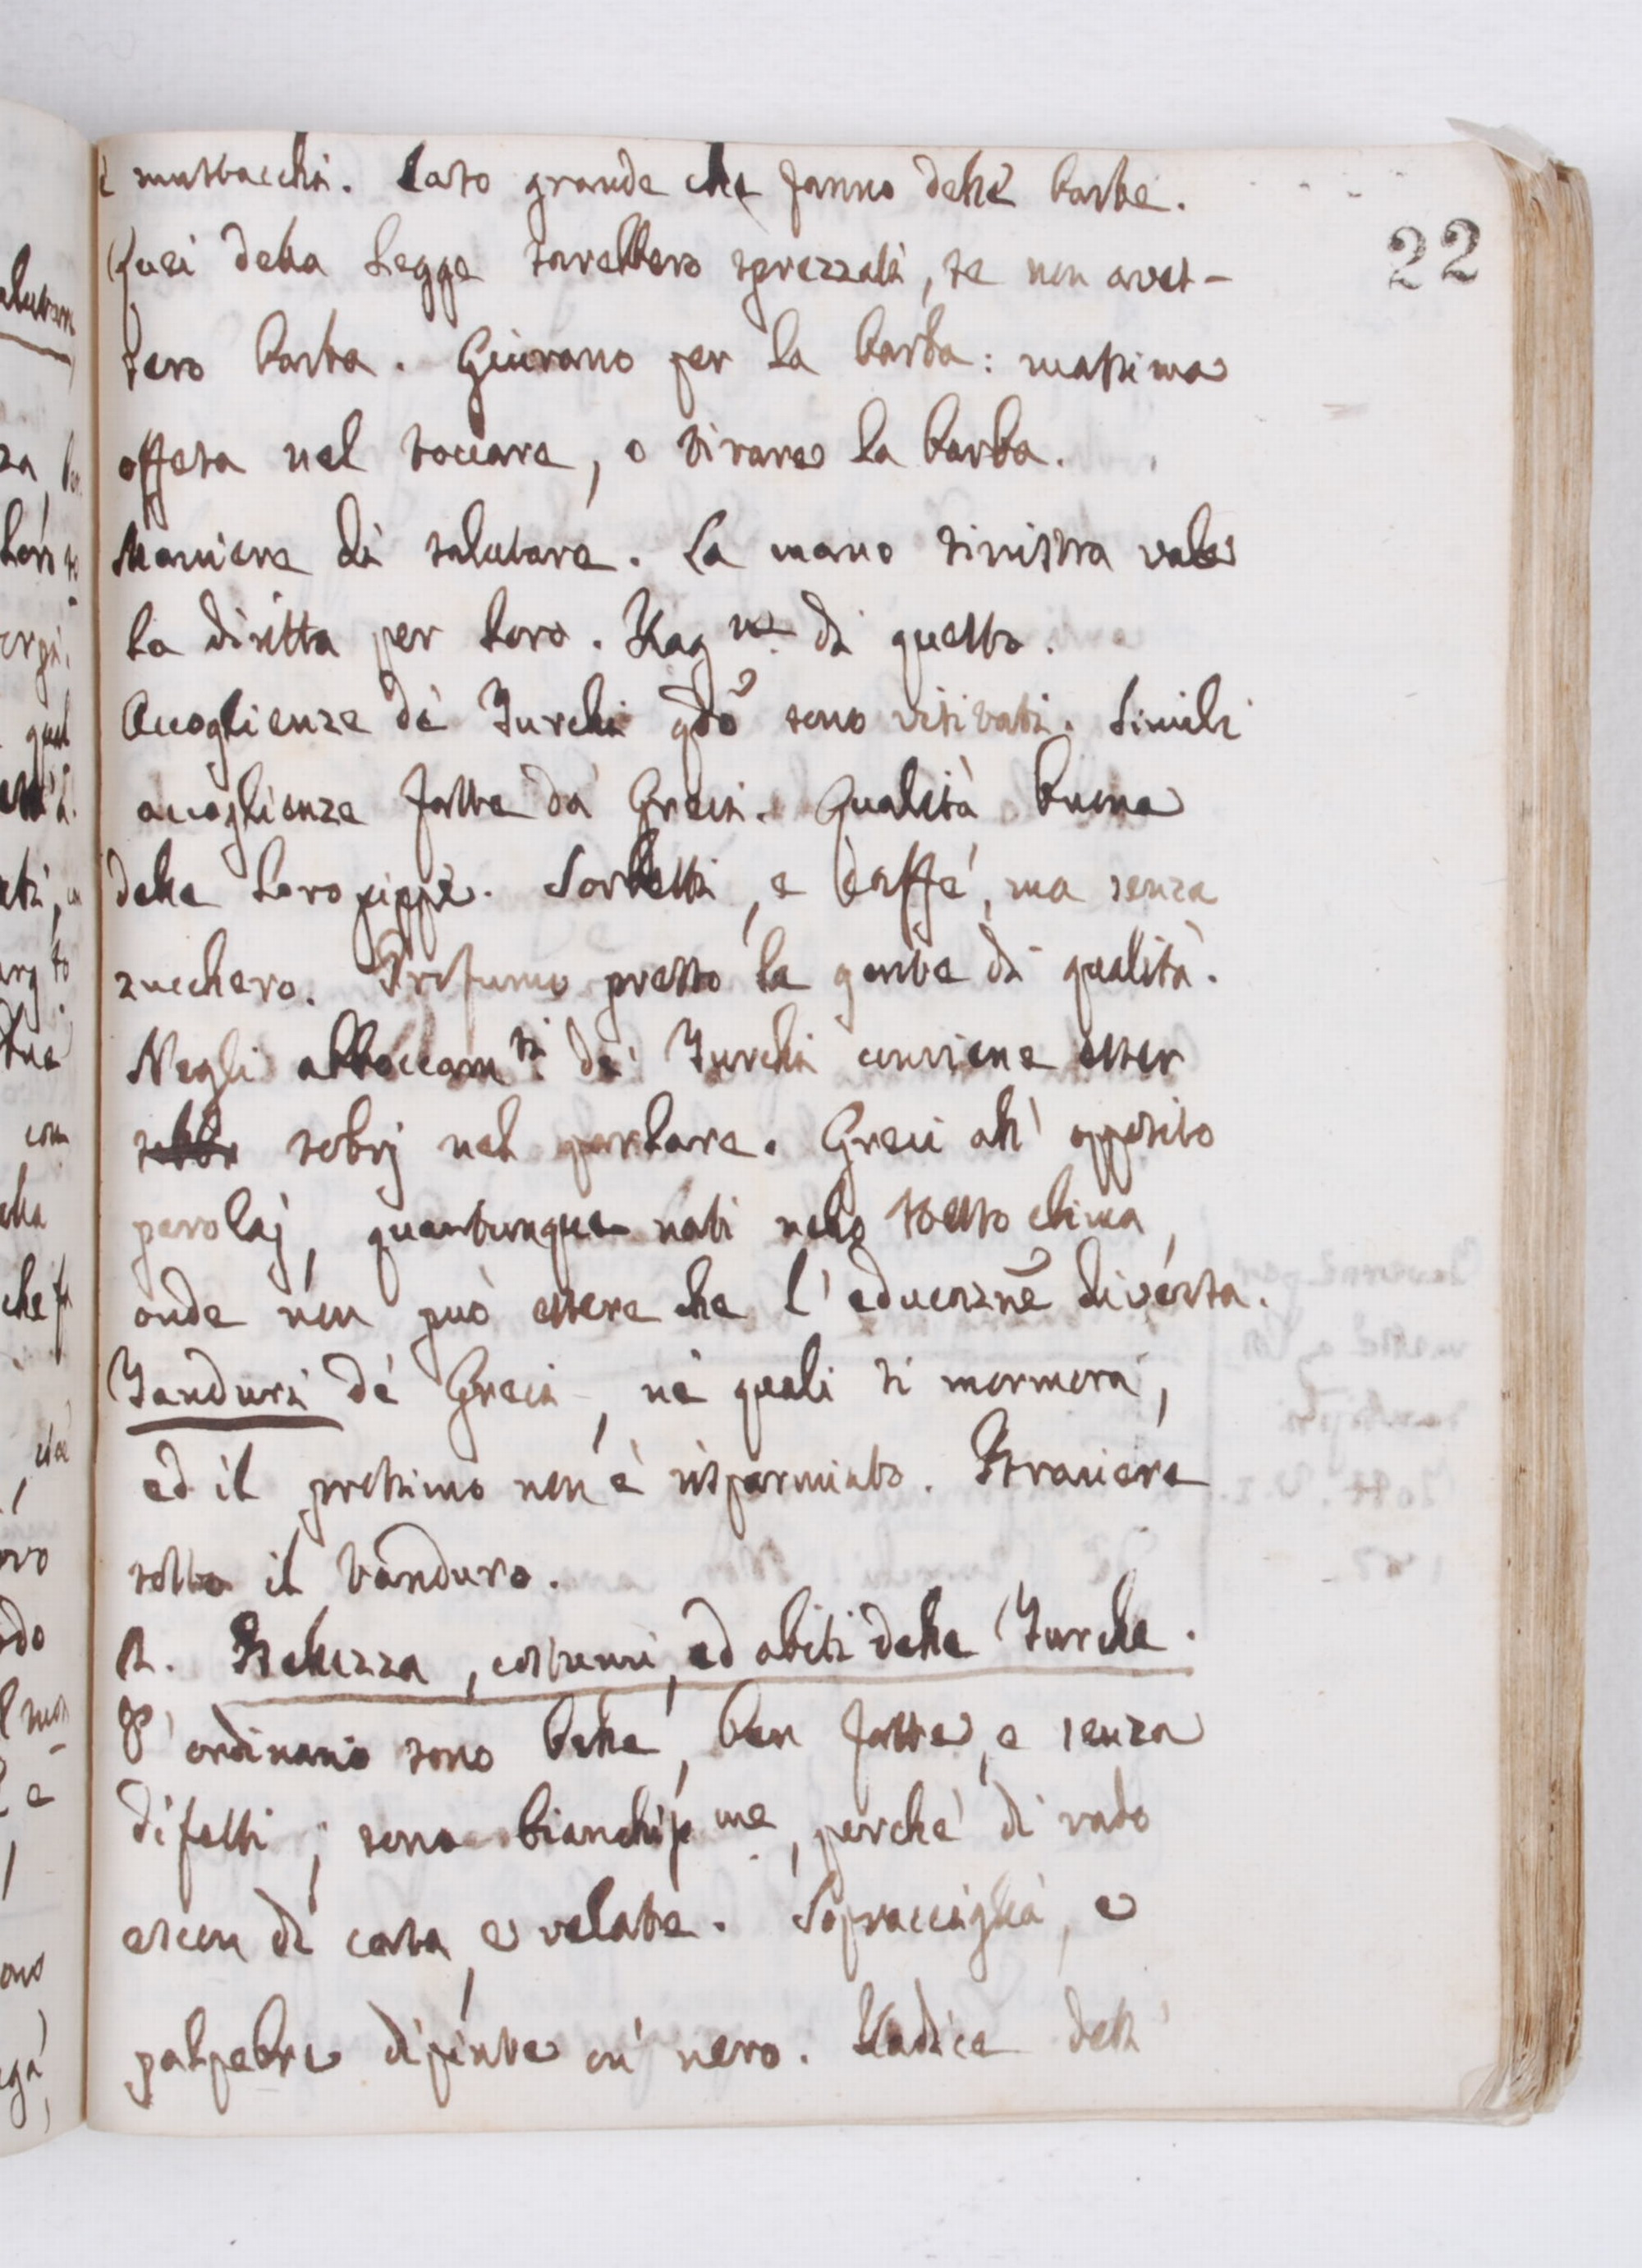 i mustacchi. Caso grande che fanno delle barbe.
22
Quei della Legge sarebbero sprezzati, se non aves-
sero barba. Giurano per la barba: massima
offesa nel toccare, o tirare la barba.
Maniere di salutare. La mano sinistra vale
la diritta per loro. Rag.ne di questo.
Accoglienze de' Turchi qdõ sono visitati. Simili
accoglienze fatte da Greci. Qualità buona
delle loro pippe. Sorbetti, e caffè, ma senza
zucchero. Profumo presso la gente di qualità.
Negli abboccam.ti de' Turchi conviene esser
sobrj nel parlare. Greci all' opposito
parolaj, quantunque nati nello stesso clima,
onde non può essere che l' educaznẽ diversa.
Tanduri de' Greci, ne' quali si mormora,
ed il prossimo non è risparmiato. Straniere
sotto il tanduro.
2. Bellezza, costumi, ed abiti delle Turche.
P' ordinario sono belle, ben fatte, e senza
difetti; sono bianchiss.me, perchè di rado
escon di casa, e velate. Sopracciglia, e
palpebre dipinte in nero. Radice dell'